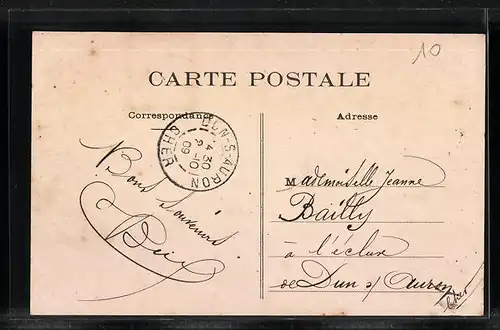 10
CARTE POSTALE
Correspondance
Adresse
DUN-S-AURON
14 30
2 -10
09
CHER
Bons Souvenirs
Mademoiselle Jeanne
Bailly
à l'écluse
de Dun s/ Auron
Cher